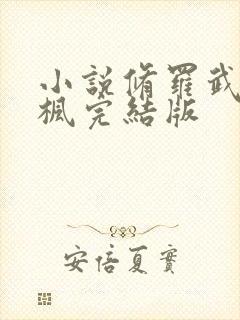 小說脩羅武
楓完結版
安倍夏實